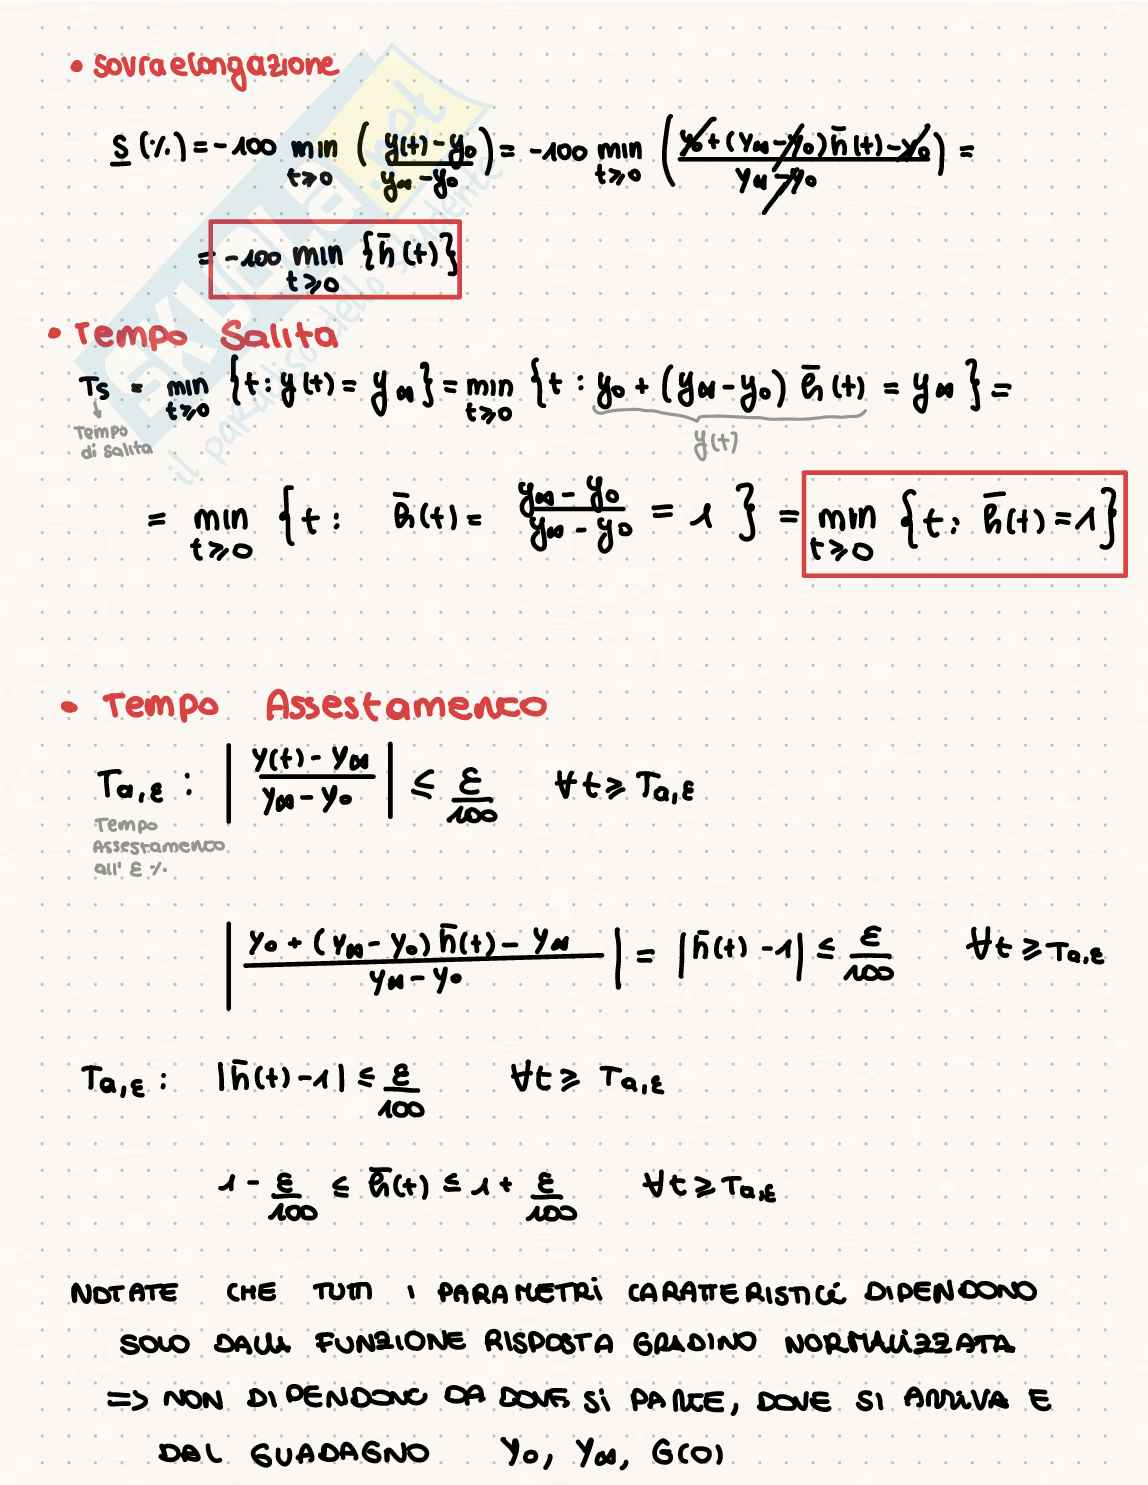 • sovraelongazione
S̲ (%) = -100 min t≥0 ( (y(t) - y₀) / (y∞ - y₀) ) = -100 min t≥0 ( (y₀ + (y∞ - y₀) h̄(t) - y₀) / (y∞ - y₀) ) =
= -100 min t≥0 { h̄(t) }
• Tempo Salita
Ts = min t≥0 { t : y(t) = y∞ } = min t≥0 { t : y₀ + (y∞ - y₀) h̄(t) = y∞ } =
Tempo di Salita
y(t)
= min t≥0 { t : h̄(t) = (y∞ - y₀) / (y∞ - y₀) = 1 } = min t≥0 { t : h̄(t) = 1 }
• Tempo Assestamento
Ta,ε : | (y(t) - y∞) / (y∞ - y₀) | ≤ ε/100 ∀t ≥ Ta,ε
Tempo
Assestamento
all' ε %
| (y₀ + (y∞ - y₀) h̄(t) - y∞) / (y∞ - y₀) | = | h̄(t) - 1 | ≤ ε/100 ∀t ≥ Ta,ε
Ta,ε : | h̄(t) - 1 | ≤ ε/100 ∀t ≥ Ta,ε
1 - ε/100 ≤ h̄(t) ≤ 1 + ε/100 ∀t ≥ Ta,ε
NOTATE CHE TUTTI I PARAMETRI CARATTERISTICI DIPENDONO
SOLO DALLA FUNZIONE RISPOSTA GRADINO NORMALIZZATA
=> NON DIPENDONO DA DOVE SI PARTE, DOVE SI ARRIVA E
DAL GUADAGNO y₀, y∞, G(0)
SKUOLA.net
il paradiso dello studente